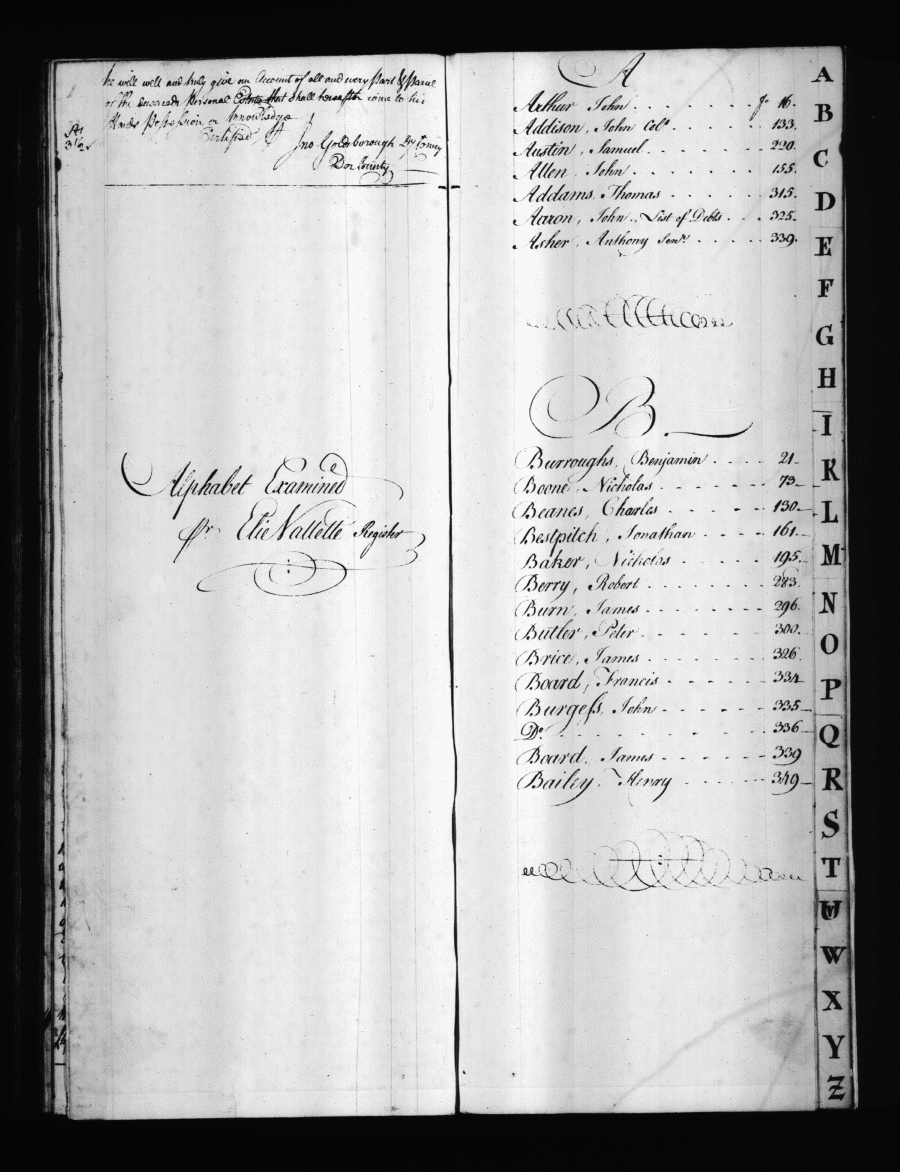 he will well and truly give an Account of all and every Part & Parcel
of the deceaseds Personal Estate that shall hereafter come to his
Hands Possession or Knowledge
Certified
Jno. Goldsborough Dy Comry
Dor County
Alphabet Examined
Pr. Elie Vallette Register
A
Arthur John . . . . . . . fo 16.
Addison, John Colo. . . . . . 133.
Austin, Samuel . . . . . . 220.
Allen, John . . . . . . . 155.
Addams, Thomas . . . . . . 315.
Aaron, John, List of Debts . . . 325.
Asher, Anthony Senr. . . . . . 339.
B.
Burroughs, Benjamin . . . . 21
Boone, Nicholas . . . . . . 73
Beanes, Charles . . . . . . 130
Bestpitch, Jonathan . . . . . 161
Baker, Nicholas . . . . . . 195
Berry, Robert . . . . . . . 283.
Burn, James . . . . . . . 296.
Butler, Peter . . . . . . . 300.
Brice, James . . . . . . . 326
Board, Francis . . . . . . 334
Burgess, John . . . . . . 335
Do. . . . . . . . . . . 336
Board, James . . . . . . 339
Bailey, Henry . . . . . . 349
A
B
C
D
E
F
G
H
I
K
L
M
N
O
P
Q
R
S
T
W
X
Y
Z